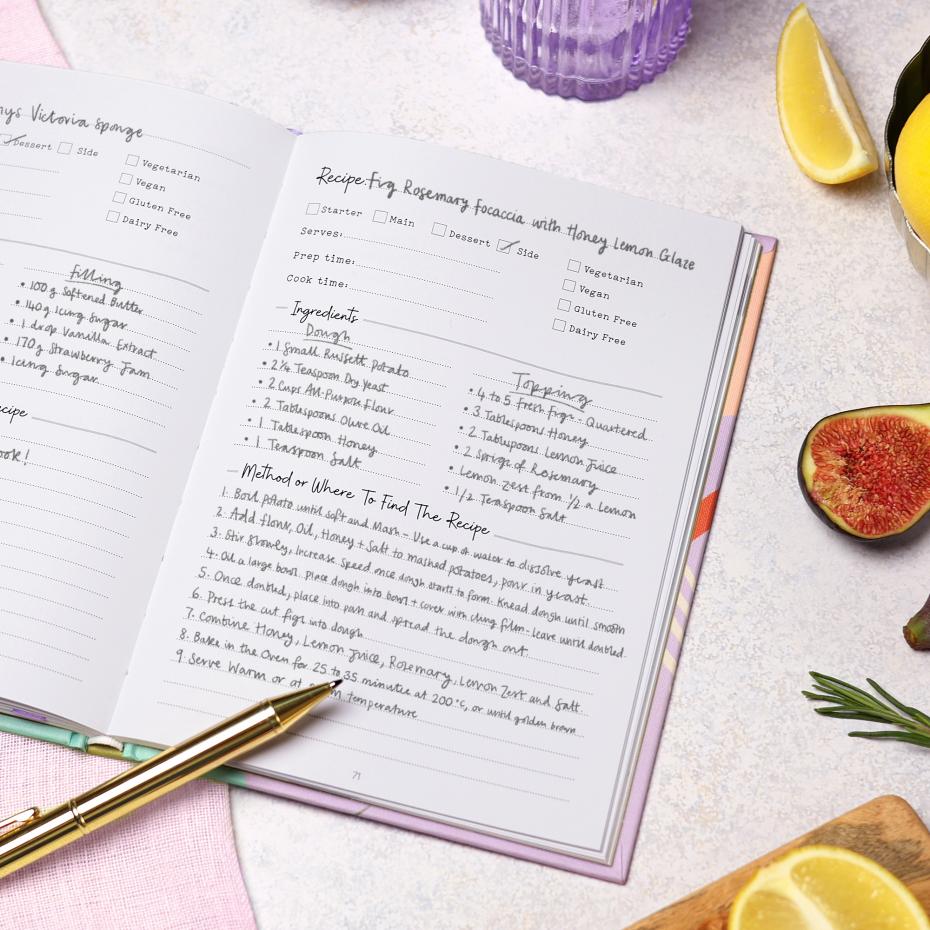 nys Victoria Sponge
Dessert Side
Vegetarian
Vegan
Gluten Free
Dairy Free
filling
• 100g Softened Butter
• 140g Icing Sugar
• 1 drop Vanilla Extract
• 170g Strawberry Jam
• Icing Sugar
ecipe
ook!
Recipe: Fig Rosemary Focaccia with Honey Lemon Glaze
Starter Main Dessert Side
Serves:
Prep time:
Cook time:
Vegetarian
Vegan
Gluten Free
Dairy Free
Ingredients
Dough
• 1 Small Russett Potato
• 2 1/4 Teaspoon Dry Yeast
• 2 Cups All-Purpose Flour
• 2 Tablespoons Olive Oil
• 1 Tablespoon Honey
• 1 Teaspoon Salt
Topping
• 4 to 5 Fresh Figs - Quartered
• 3 Tablespoons Honey
• 2 Tablespoons Lemon Juice
• 2 Sprigs of Rosemary
• Lemon Zest from 1/2 a Lemon
• 1/2 Teaspoon Salt
Method or Where To Find The Recipe
1. Boil Potato until soft and Mash - Use a cup of water to dissolve yeast
2. Add flour, Oil, Honey + Salt to mashed potatoes, pour in yeast
3. Stir slowly, increase speed once dough starts to form. Knead dough until smooth
4. Oil a large bowl. Place dough into bowl + cover with cling film - leave until doubled
5. Once doubled, place into pan and spread the dough out
6. Press the cut figs into dough
7. Combine Honey, Lemon Juice, Rosemary, Lemon Zest and Salt
8. Bake in the Oven for 25 to 35 minutes at 200°C, or until golden brown
9. Serve Warm or at temperature
71